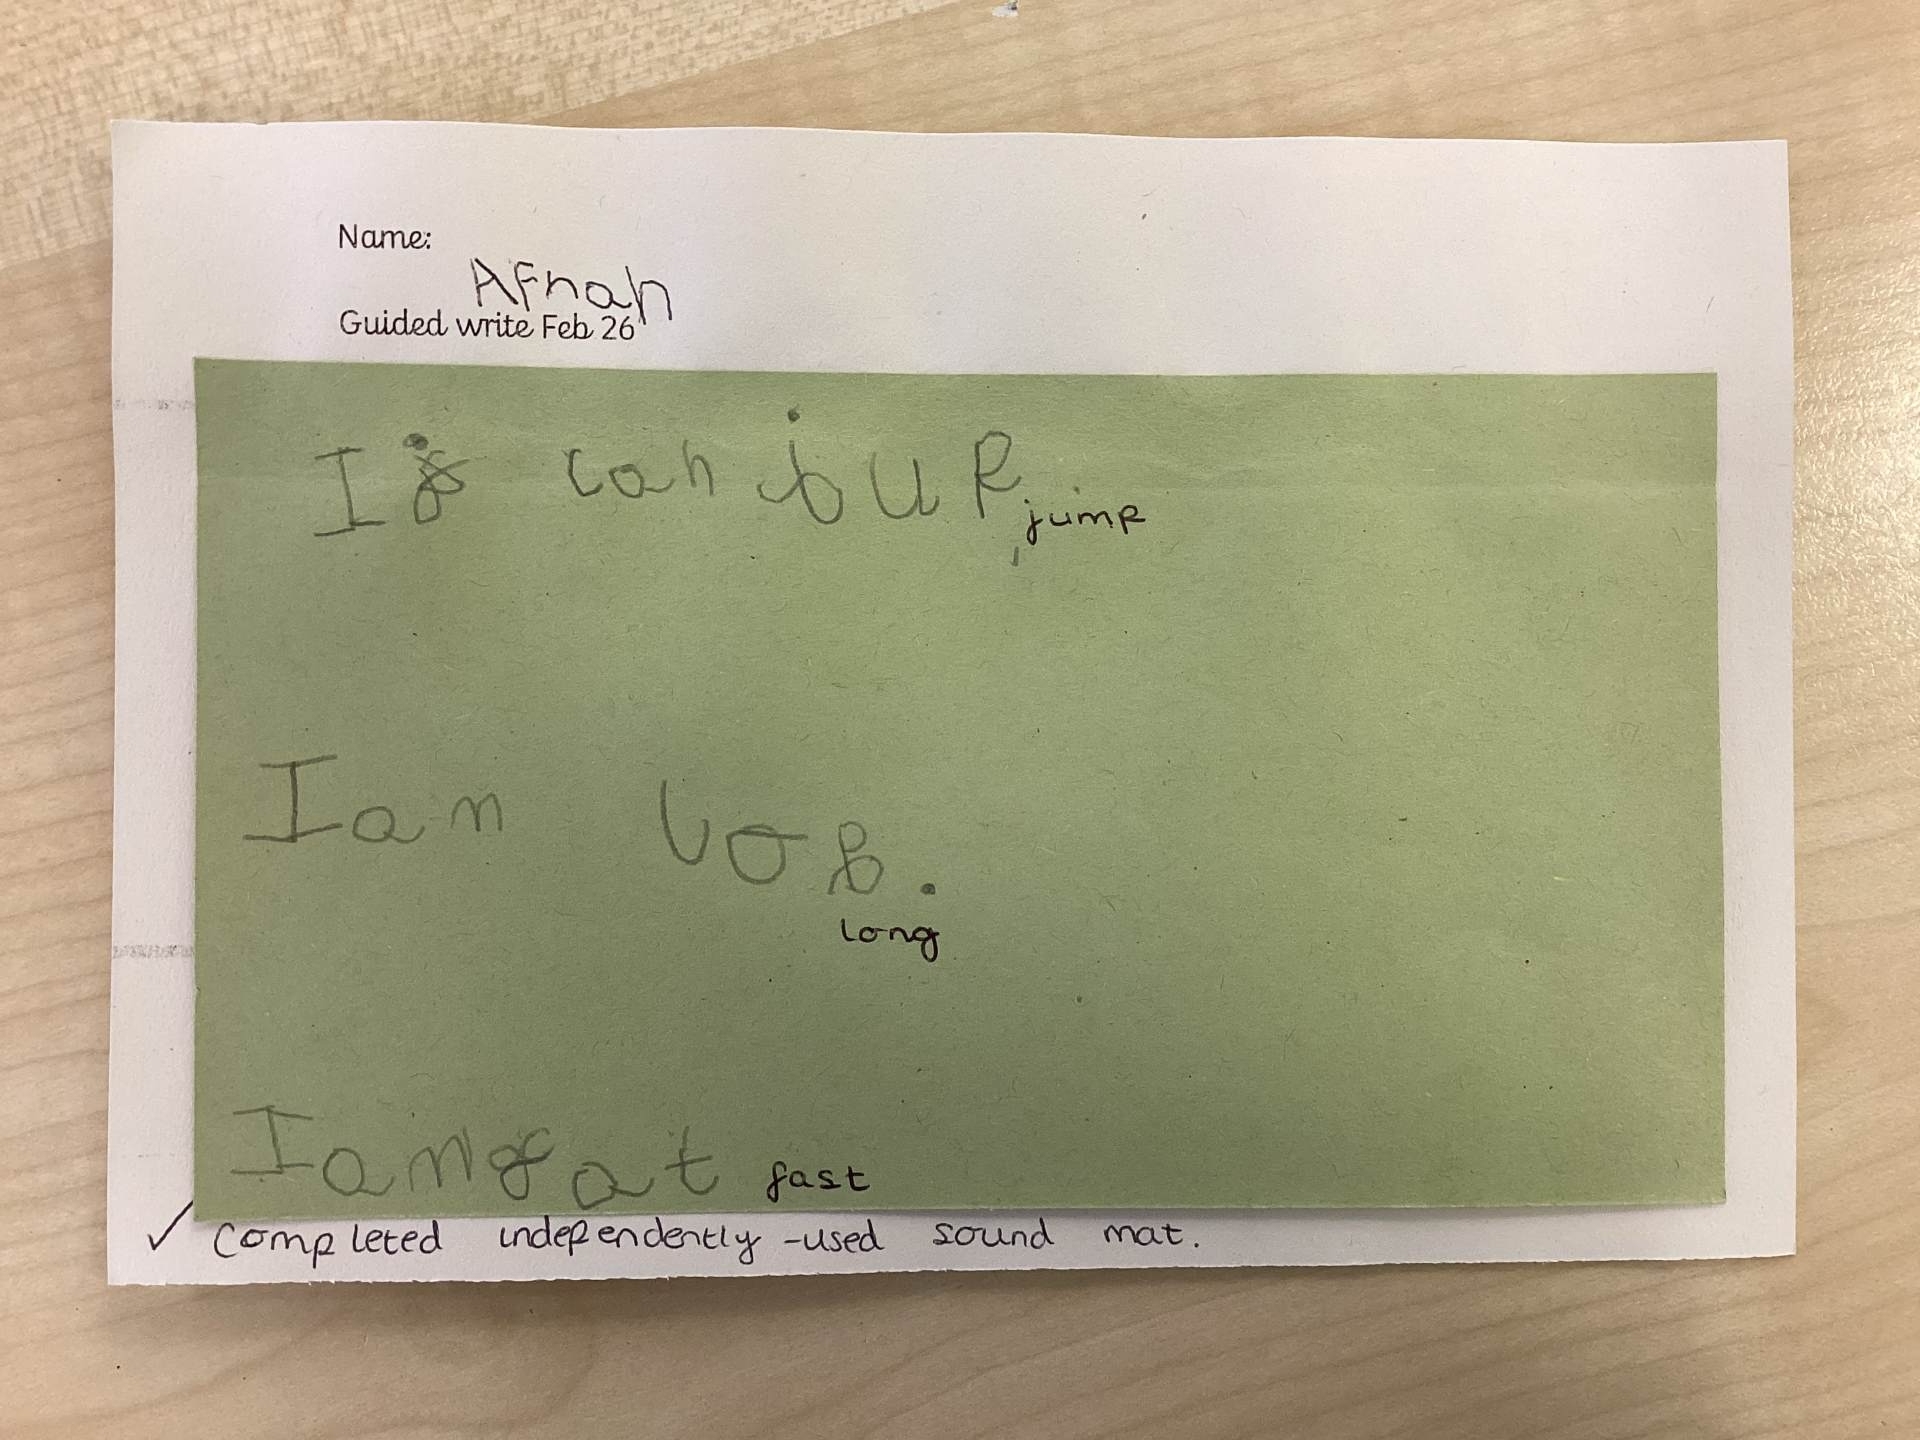 Name:
Afnah
Guided write Feb 26
I can jup
jump
I am
long
I am fat fast
✓ completed independently -used sound mat.